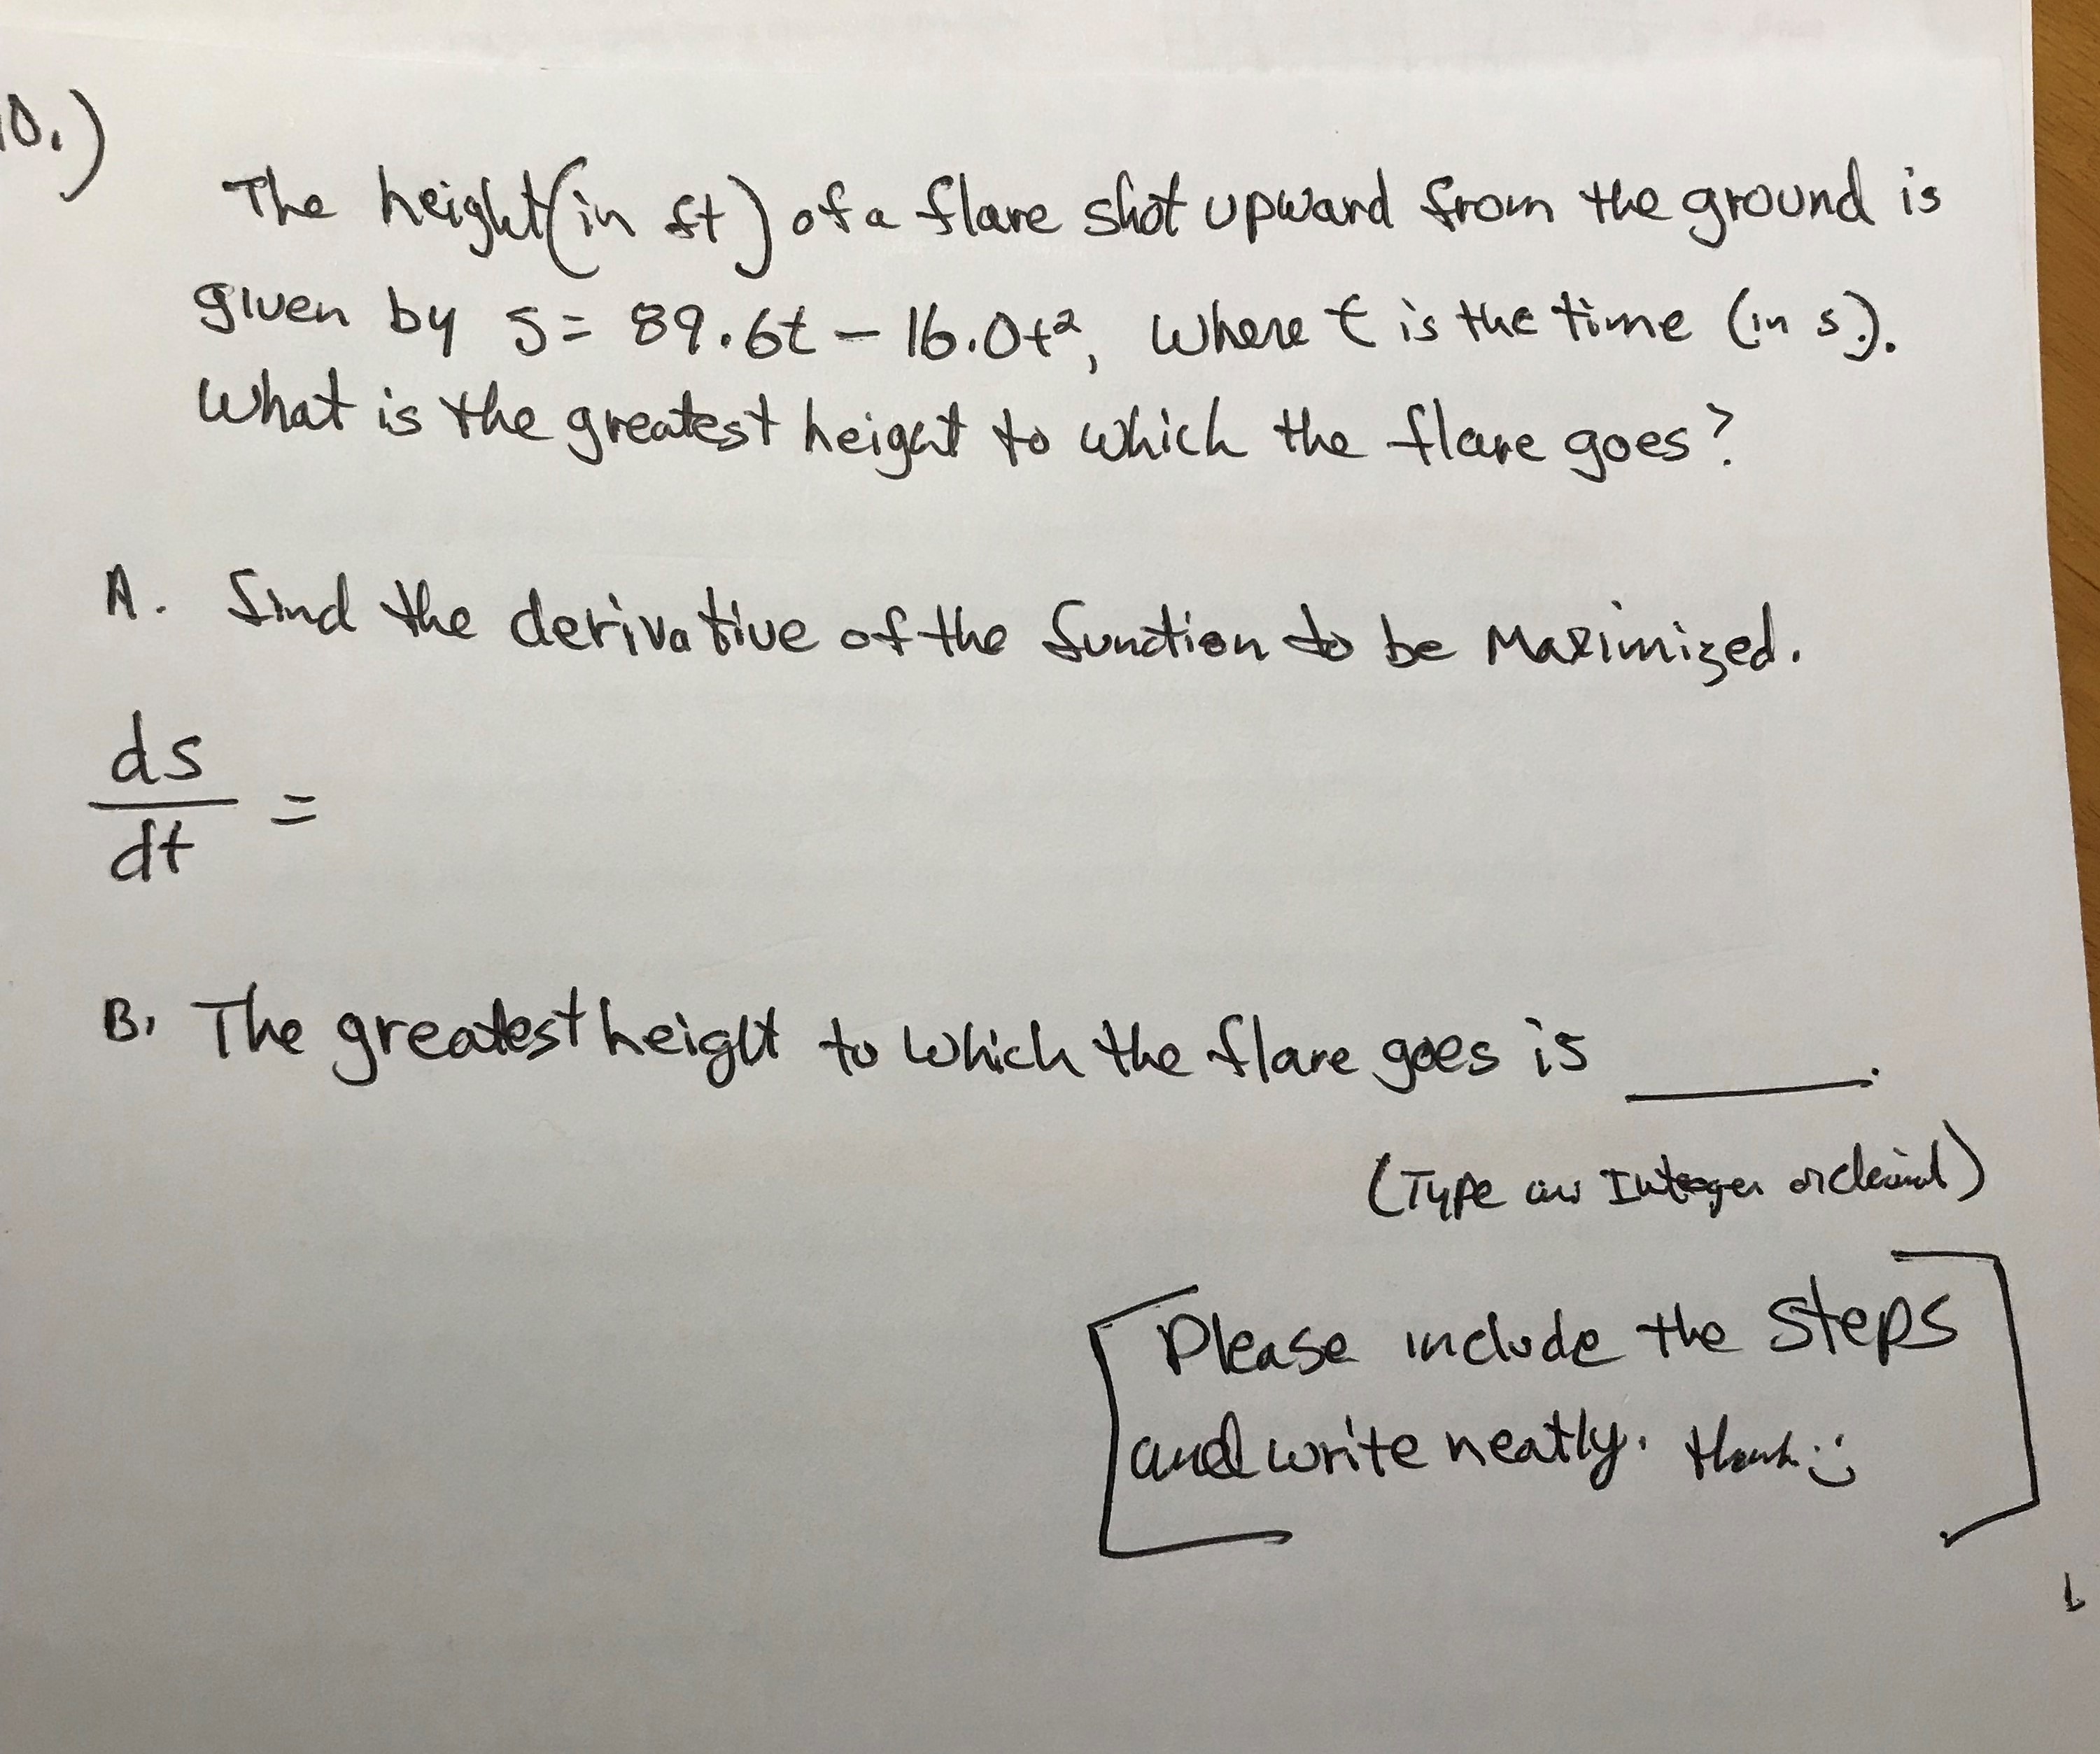 10.)
The height (in ft) of a flare shot upward from the ground is
given by s = 89.6t - 16.0t², where t is the time (in s.).
What is the greatest height to which the flare goes?
A. find the derivative of the function to be Maximized.
ds
dt =
B. The greatest height to which the flare goes is ______.
(Type an Integer or decimal)
Please include the steps
and write neatly. thank :)